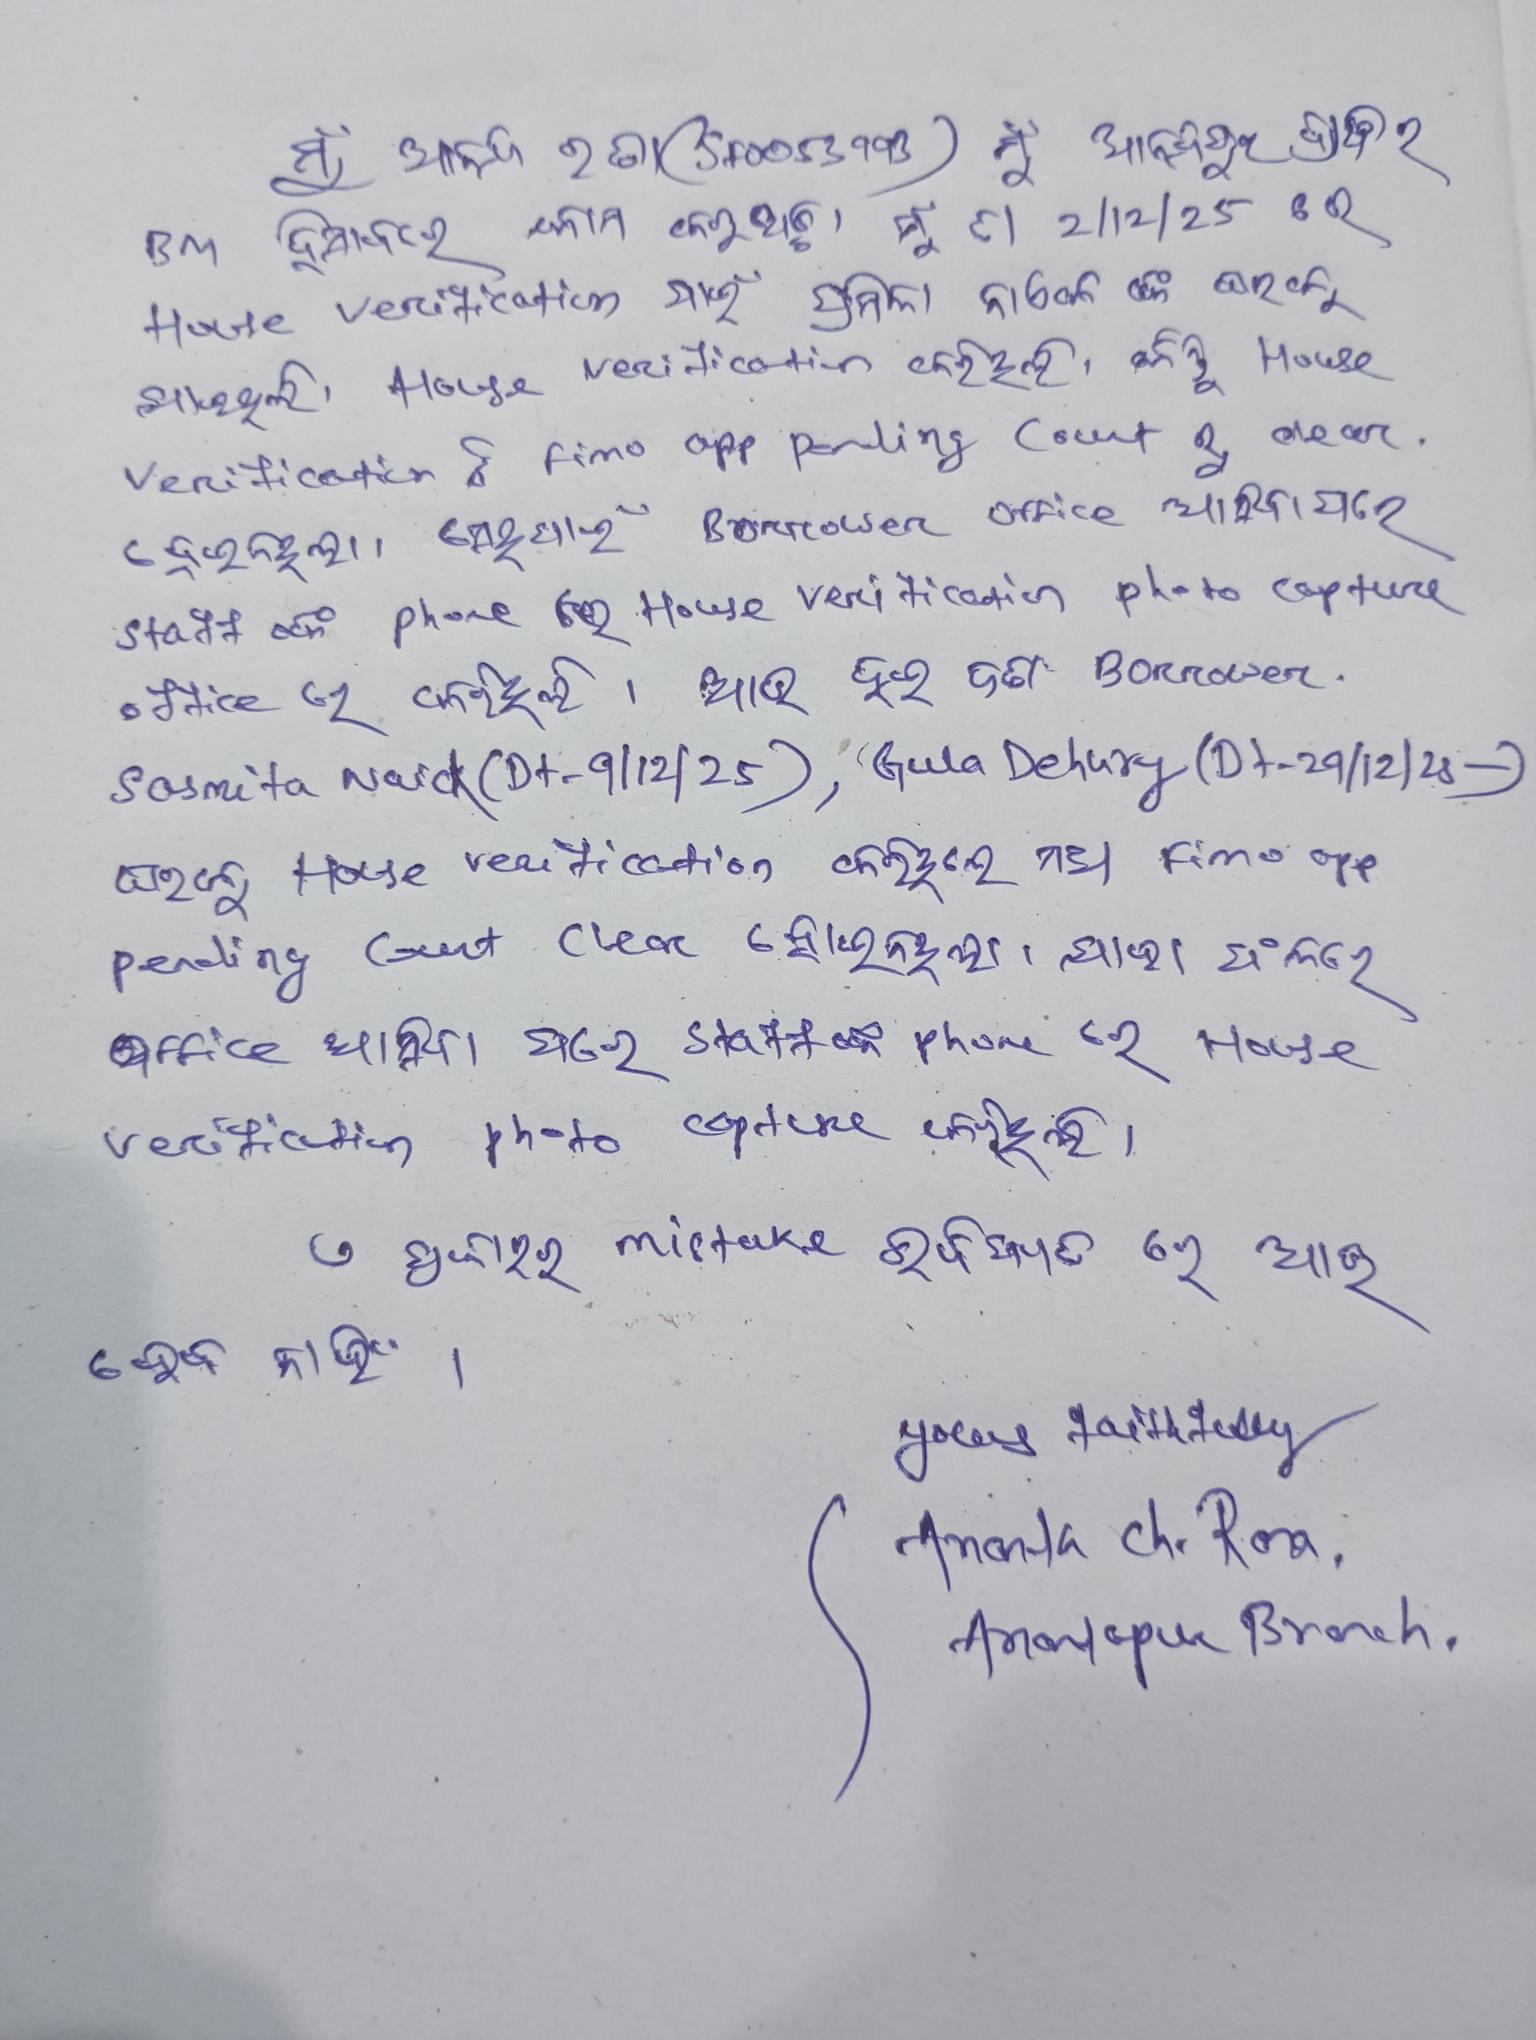 ମୁଁ ଅନନ୍ତ ରଣା (SF0053993) ମୁଁ ଆନନ୍ଦପୁର ବ୍ରାଞ୍ଚର
BM ହିସାବରେ କାମ କରୁଅଛି। ମୁଁ ତା 2/12/25 ରେ
House verification ପାଇଁ ପ୍ରମିଳା ନାଏକ ଙ୍କ ଘରକୁ
ଯାଇଥିଲି। House verification କରିଥିଲି, କିନ୍ତୁ House
verification ଟି Fimo app pending Count ରୁ clear.
ହୋଇନଥିଲା। ସେଥିପାଇଁ Borrower office ଆସିବା ପରେ
staff ଙ୍କ phone ରେ House verification photo capture
office ରେ କରିଥିଲି। ଆଉ ଦୁଇ ଜଣ Borrower.
Sasmita Naick (Dt-9/12/25), Gula Dehury (Dt-29/12/25)
ଘରକୁ House verification କରିଥିଲେ ମଧ୍ୟ Fimo app
pending Count Clear ହୋଇନଥିଲା। ଯାହା ଫଳରେ
office ଆସିବା ପରେ staff ଙ୍କ phone ରେ House
verification photo capture କରିଥିଲି।
ଏ ପ୍ରକାରର mistake ଭବିଷ୍ୟତ ରେ ଆଉ
ହେବ ନାହିଁ।
yours faithfully
Ananta Ch. Rana.
Anandapur Branch.